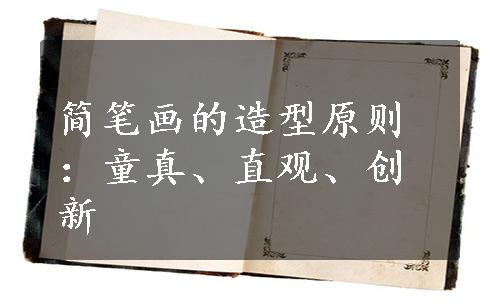 简笔画的造型原则
：童真、直观、创
新